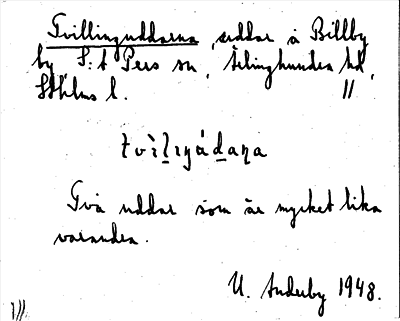 Tvillinguddarna, uddar å Billby
by, S:t Pers sn, Ärlinghundra hd,
Sthlms l. //
tvìlıŋádaṇa
Två uddar som är mycket lika
varandra.
U. Anderby 1948.